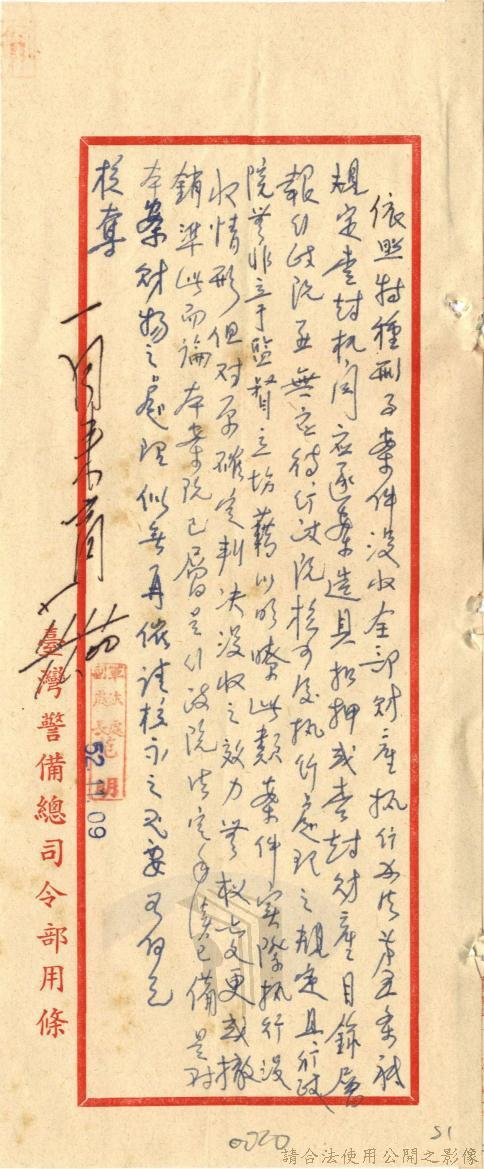 依照特種刑事案件沒收全部財產執行辦法第五條
規定查封机関應逐案造具扣押或查封財產目錄層
報行政院並無应待行政院核可後執行處理之規定且行政
院無非立于監督立場藉以明瞭此類案件实際執行沒
收情形但对原確定判決沒收之效力無权变更或撤
銷準此而論本案既已層呈行政院法定手續已備是对
本案財物之處理似無再催請核示之必要可何乞
核奪
軍法處
副處長范明
52.11.09
臺灣警備總司令部用條
0020
51
請合法使用公開之影像